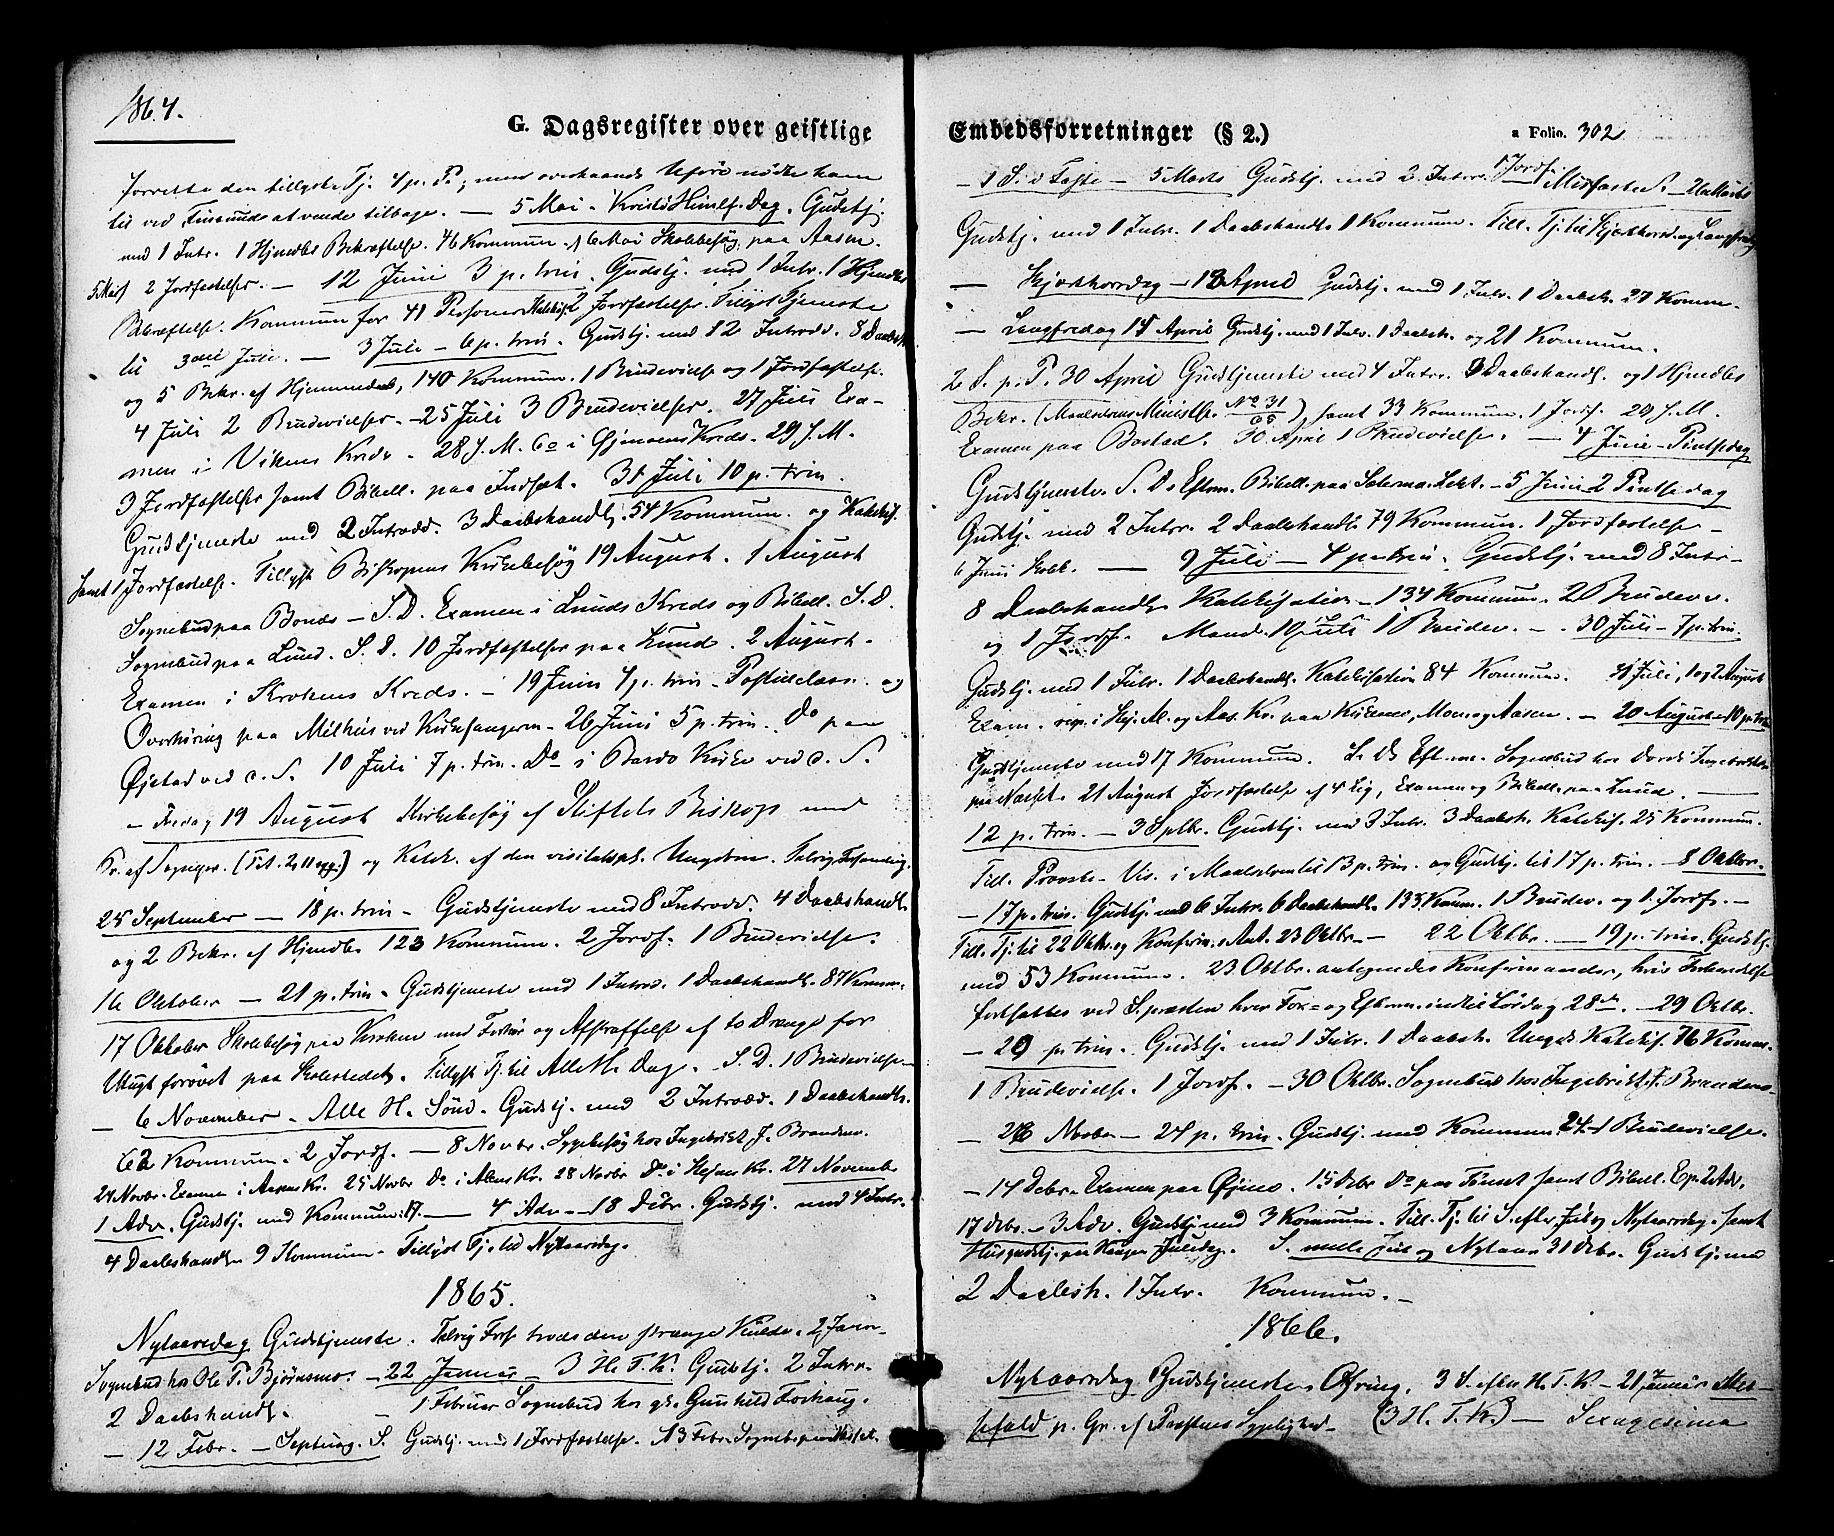 1864.
G. Dagsregister over geistlige
forrette den tillyste Tj. 4 p. P.; men overhaands Uføre nødte ham
til ved Fossmo at vende tilbage. — 5 Mai - Kristi Himlf. Dag. Gudstj.
med 1 Intr. 1 Hjmdbs Bekræftelse. 46 Kommun. 6 Mai Skolebesøg paa Aasen.
2 Jordfæstelser. — 12 Juni 3 p. trin. Gudstj. med 1 Intr. 1 Hjemdbs
Bekræftelse. Kommun for 41 Personer 2 Jordfæstelser. Tillyst Tjeneste
til 3die Juli. — 3 Juli - 6 p. trin. Gudstj. med 12 Introd. 8 Daabsh
og 5 Bekr. af Hjemmedaab, 140 Kommun. 1 Brudevielse og 1 Jordfæstelse.
4 Juli 2 Brudevielser. - 25 Juli 3 Brudevielser. 27 Juli Exa-
men i Vikens Kreds - 28 J. M. do i Kreds. - 29 J. M.
3 Jordfæstelser samt Bibell. paa Indset. 31 Juli 10 p. trin.
Gudstjeneste med 2 Introd. 3 Daabshandl. 54 Kommun. og Katekis.
samt 1 Jordfæstelse. Tillyst Biskopens Kirkebesøg 19 August. 1 August
Sognebud paa Bonæs - S. D. Examen i Lunds Kreds og Bibell. S. D.
Sognebud paa Lund. S. D. 10 Jordfæstelser paa Lund. 2 August.
Examen i Krokens Kreds. - 19 Juni 4 p. trin - Postillelæsn. og
Overhøring paa Melhus ved Kirkesangeren - 26 Juni 5 p. trin. Do paa
Øjestad ved d. S. 10 Juli 7 p. trin. Do i Bardo Kirke ved d. S.
- Fredag 19 August Kirkebesøg af Stiftets Biskop med
Pr. af Sognepr. og Katek. af den visitatspl. Ungdom. Talrig Forsamling.
25 September - 18 p. trin - Gudstjeneste med 8 Introd. 4 Daabshandl.
og 2 Bekr. af Hjmdb. 123 Kommun. 2 Jordf. 1 Brudevielse.
16 Oktober - 21 p. trin - Gudstjeneste med 1 Introd. 1 Daabshandl. 87 Kommun.
17 Oktober Skolebesøg paa Kirken med Forhør og Afstraffelse af to Drenge for
Utugt forøvet paa Skolestedet. Tillyst Tj. til Alle H. Dag. S. D. 1 Brudevielse
- 6 November - Alle H. Sønd. Gudstj. med 2 Introd. 1 Daabshandl.
62 Kommun. 2 Jordf. - 8 Novbr. Sygebesøg hos Ingebrikt J. Brandmo.
24 Novbr. Examen i Aasens Kr. 25 Novbr Do i Kr. 28 Novbr Do i Kr. 27 Novemb
1 Adv. Gudstj. med Kommun: 17. — 4 Adv - 18 Debr. Gudstj. med 4 Intr.
4 Daabshandl. 9 Kommun. Tillyst Tj. til Nytaarsdag.
1865.
Nytaarsdag Gudstjeneste. Talrig Fors. trods den strænge Kulde. 2 Januar
Sognebud hos Ole P. Bjørnsmo. - 22 Januar - 3 H. T. K. Gudstj. 2 Intr.
2 Daabshandl. 1 Februar Sognebud hos Gunhild Forhaug.
- 12 Febr. - Septuag. S. Gudstj. med 1 Jordfæstelse. 13 Febr. Sogneb.
Embedsforretninger (§ 2.)
a Folio. 302
- 1 S. i Faste - 5 Marts Gudstj. med 2 Intr. 1 Jordf. - Midfaste S. - 26 Marts
Gudstj. med 1 Intr. 1 Daabshandl. 1 Kommun. Till. Tj. til Skjærthorsd. og Langfredag
- Skjærthorsdag - 13 April Gudstj. med 1 Intr. 1 Daabsh. 27 Komm.
- Langfredag 14 April Gudstj. med 1 Intr. 1 Daabsh. og 21 Kommun.
2 S. p. P. 30 April Gudstjeneste med 4 Intr. 3 Daabshandl. og 1 Hjmdbs
Bekr. (Maalselvens Ministlb. No 31/65), samt 33 Kommun. 1 Jordf. 29 J. M.
Examen paa Bostad. 30 April 1 Brudevielse. - 4 Juni - Pintsedag
Gudstjeneste. S. D. Eftm. Bibell. paa Slet. - 5 Juni 2 Pintsedag
Gudstj. med 2 Intr. 2 Daabshandl. 79 Kommun. 1 Jordfæstelse -
6 Juni Skolb. — 9 Juli - 4 p. trin. Gudstj. med 8 Intr.
8 Daabshandl. Katekisation - 134 Kommun. 2 Brudev.
og 1 Jordf. Mand. 10 Juli 1 Brudev. - 30 Juli - 7 p. trin.
Gudstj. med 1 Intr. 1 Daabshandl. Katekisation 84 Kommun. 31 Juli, 1 og 2 August
Exam. i og Aas. Kr. paa Moen og Aasen. - 20 August - 10 p. trin
Gudstjeneste med 17 Kommun. S. Ds Eftm. Sognebud hos
paa 21 August Jordfæstelse af 4 Lig, Examen og Bibell. paa Lund. —
12 p. trin. - 3 Septbr. Gudstj. med 3 Intr. 3 Daabsh. Katekis. 25 Kommun.
Till. Provste-Vis. i Maalselven til 13 p. trin. og Gudstj. til 17 p. trin. - 8 Oktbr.
- 17 p. trin. Gudstj. med 6 Intr. 6 Daabshandl. 135 Komm. 1 Brudev. og 1 Jordf. -
Till. Tj. til 22 Oktbr. og Konfirm. Ant. 23 Oktbr. - 22 Oktbr. - 19 p. trin. Gudstj.
med 53 Kommun. 23 Oktbr. antegnedes Konfirmander, hvis Forberedelse
fortsattes ved S.præsten hver For- og Efterm. indtil Lørdag 28de. - 29 Oktbr.
- 20 p. trin. Gudstj. med 1 Intr. 1 Daabsh. Ungd. Katekis. 76 Kommun.
1 Brudevielse. 1 Jordf. - 30 Oktbr. Sognebud hos Ingebrikt J. Brandmo
- 26 Novbr - 24 p. trin. Gudstj. med Kommun. 24. 1 Brudevielse.
- 14 Debr. Examen paa Øjmo. 15 Debr Do paa samt Bibell. Ep. 2 Adv.
17 Debr. - 3 Adv. Gudstj. med 3 Kommun. Till. Tj. til S. efter Jul og Nytaarsdag samt
Husgudstj. paa Juledag. S. mell. Jul og Nytaar 31 Debr. Gudstj. med
2 Daabsh. 1 Intr. Kommun. -
1866.
Nytaarsdag Gudstjeneste Ofring. 3 S. efter H. T. K. - 21 Januar Mes-
sefald p. Gr. af Præstens Sygelighed - (3 H. T. K.) - Sexagesima